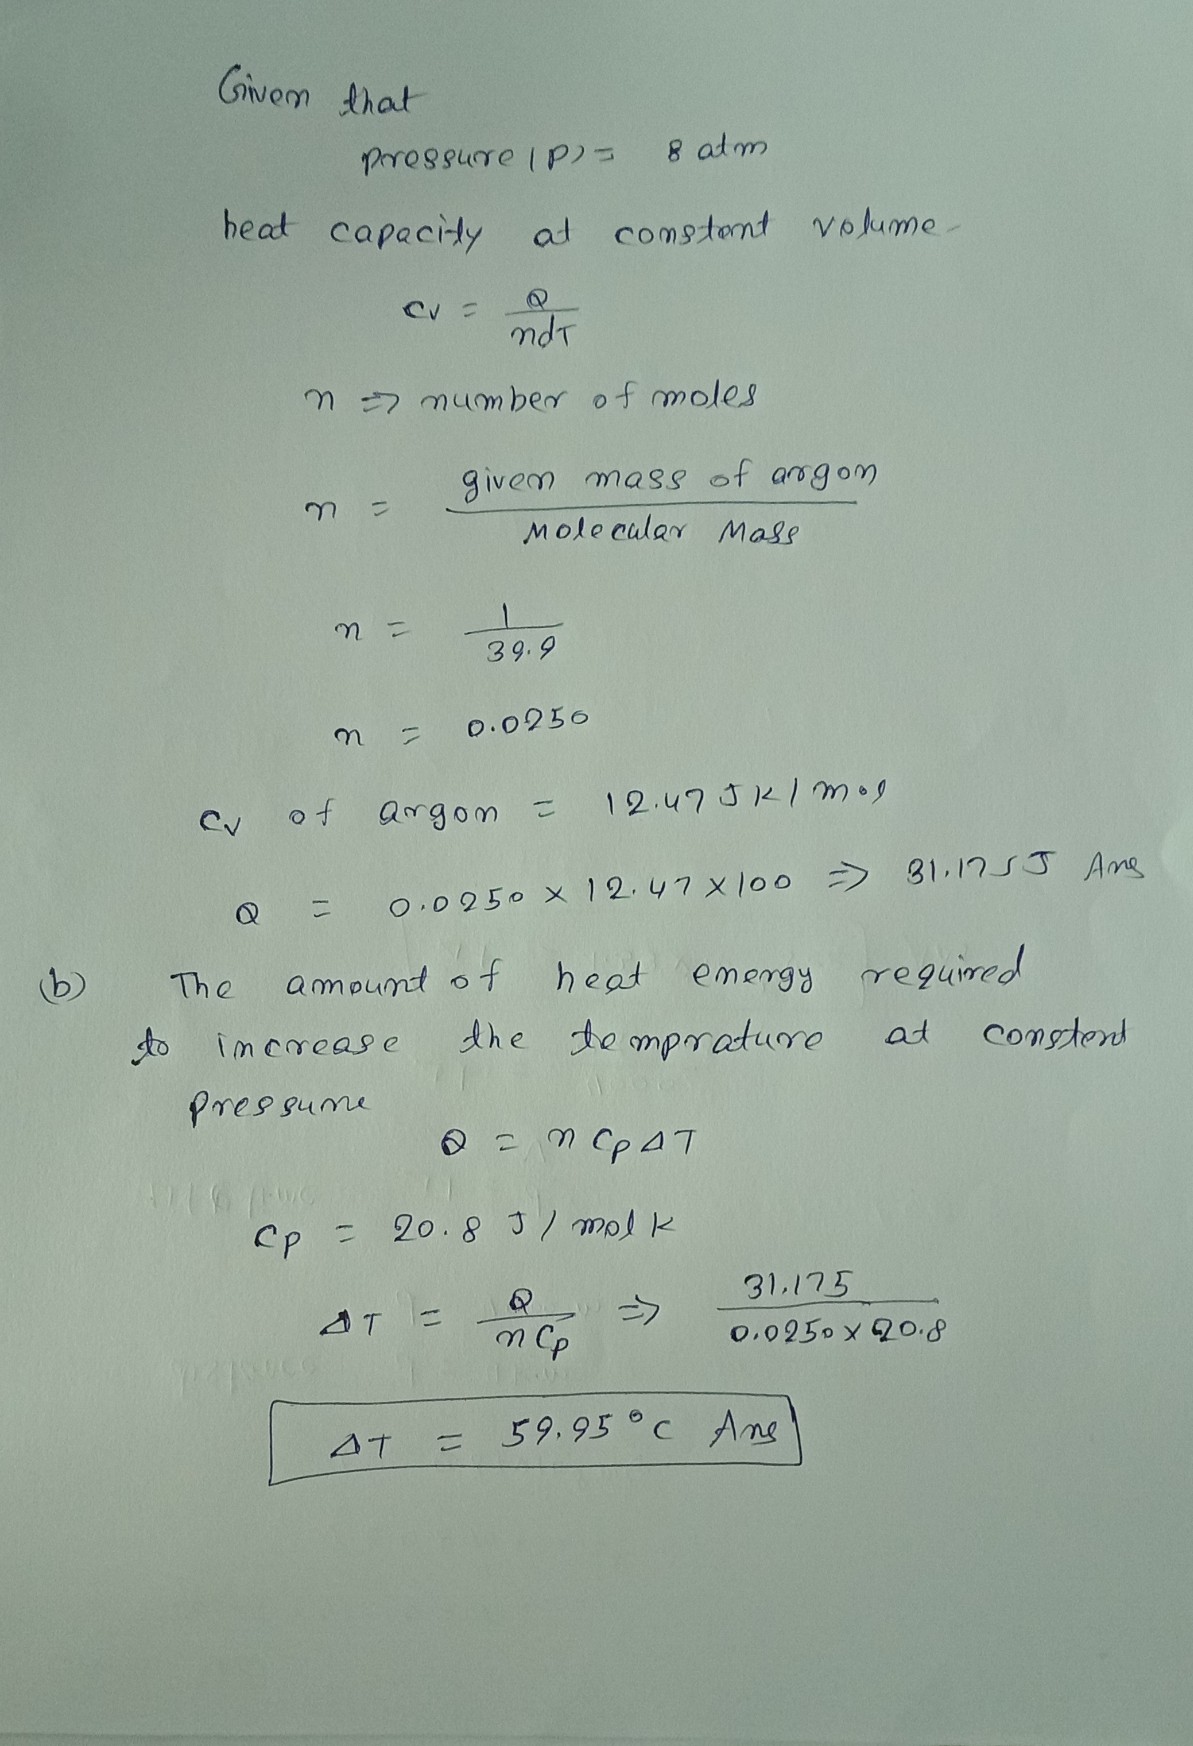 Given that
pressure (P) = 8 atm
heat capacity at constant volume -
Cv = Q / ndT
n => number of moles
n = given mass of argon / Molecular Mass
n = 1 / 39.9
n = 0.0250
Cv of argon = 12.47 JK/mol
Q = 0.0250 x 12.47 x 100 => 31.175 J Ans
(b) The amount of heat energy required
to increase the temprature at constent
pressure
Q = n Cp ΔT
Cp = 20.8 J/mol k
ΔT = Q / n Cp => 31.175 / 0.0250 x 20.8
ΔT = 59.95 °C Ans